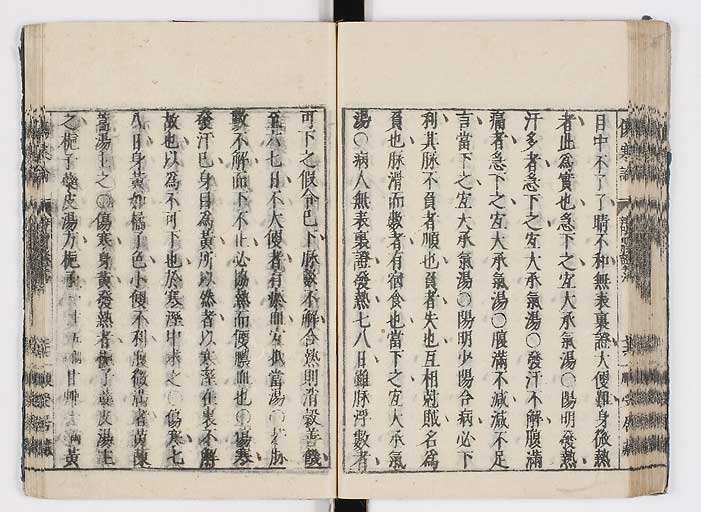 目中不了了睛不和無表裏證大便難身微熱
者此為實也急下之宜大承氣湯○陽明發熱
汗多者急下之宜大承氣湯○發汗不解腹滿
痛者急下之宜大承氣湯○腹滿不減減不足
言當下之宜大承氣湯○陽明少陽合病必下
利其脉不負者順也負者失也互相尅賊名為
負也脉滑而數者有宿食也當下之宜大承氣
湯○病人無表裏證發熱七八日雖脉浮數者
可下之假令已下脉數不解合熱則消穀善饑
至六七日不大便者有瘀血宜抵當湯○若脉
數不解而下不止必協熱而便膿血也○傷寒
發汗已身目為黃所以然者以寒溼在裏不解
故也以為不可下也於寒溼中求之○傷寒七
八日身黃如橘子色小便不利腹微滿者茵蔯
蒿湯主之○傷寒身黃發熱者梔子蘗皮湯主
之梔子蘗皮湯方梔 十五個甘艸 兩黃
傷寒論